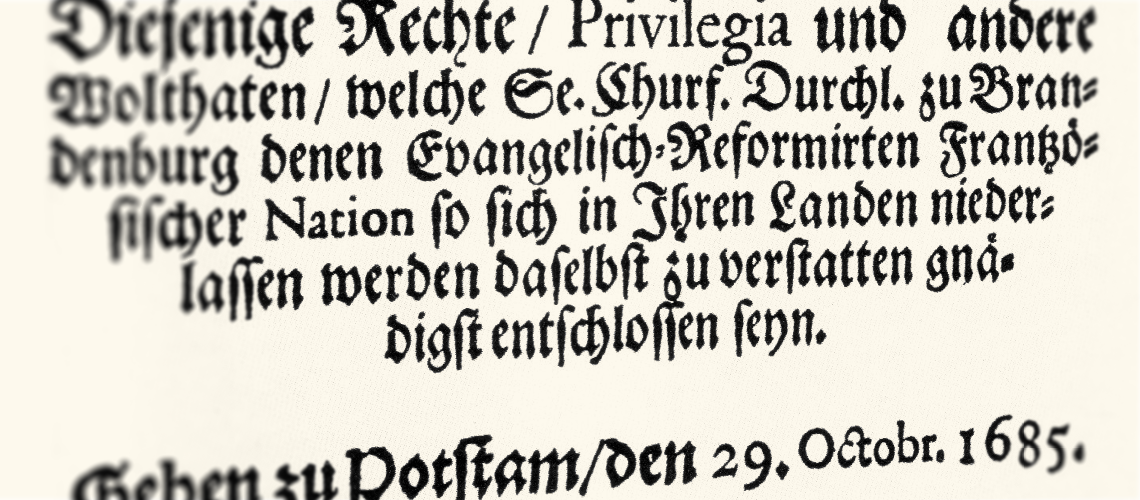 Diejenige Rechte / Privilegia und andere
Wolthaten / welche Se. Churf. Durchl. zu Bran⸗
denburg denen Evangeliſch⸗Reformirten Frantzoͤ⸗
ſiſcher Nation ſo ſich in Ihren Landen nieder⸗
laſſen werden daſelbſt zu verſtatten gnaͤ⸗
digſt entſchloſſen ſeyn.
Geben zu Potſtam / den 29. Octobr. 1685.